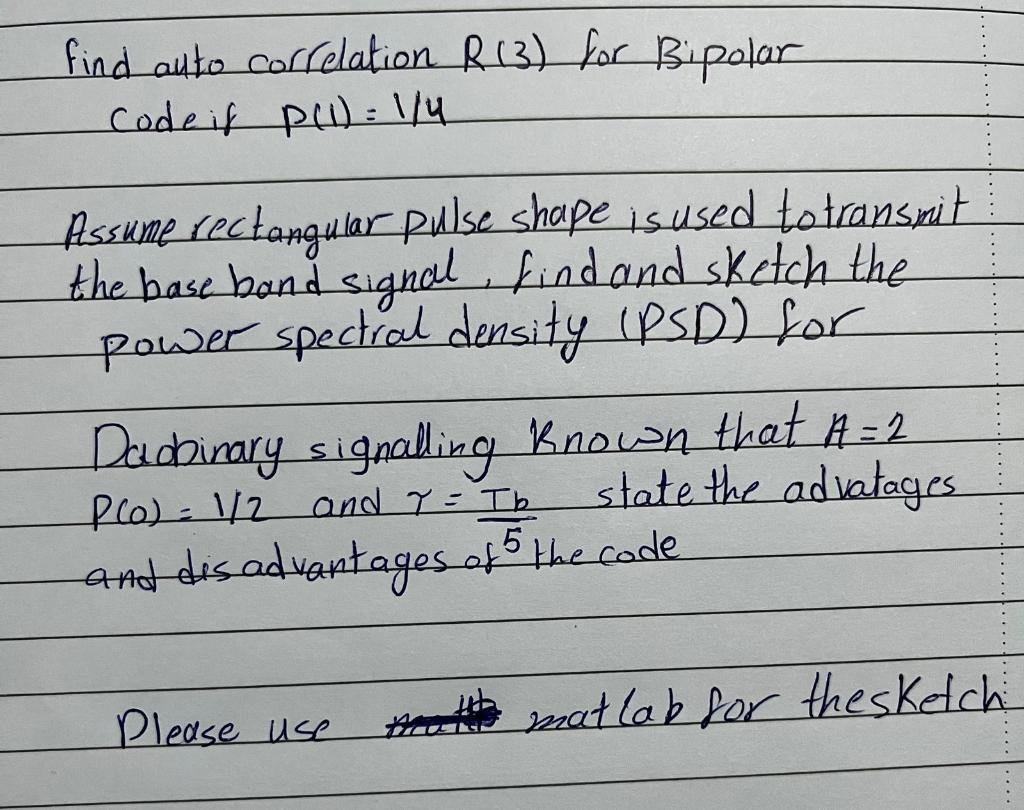 find auto correlation R(3) for Bipolar
Code if P(1) = 1/4
Assume rectangular pulse shape is used to transmit
the base band signal, find and sketch the
power spectral density (PSD) for
Duobinary signalling Known that A=2
P(0) = 1/2 and τ = Tb/5 state the advatages
and disadvantages of the code
Please use matlab for the sketch